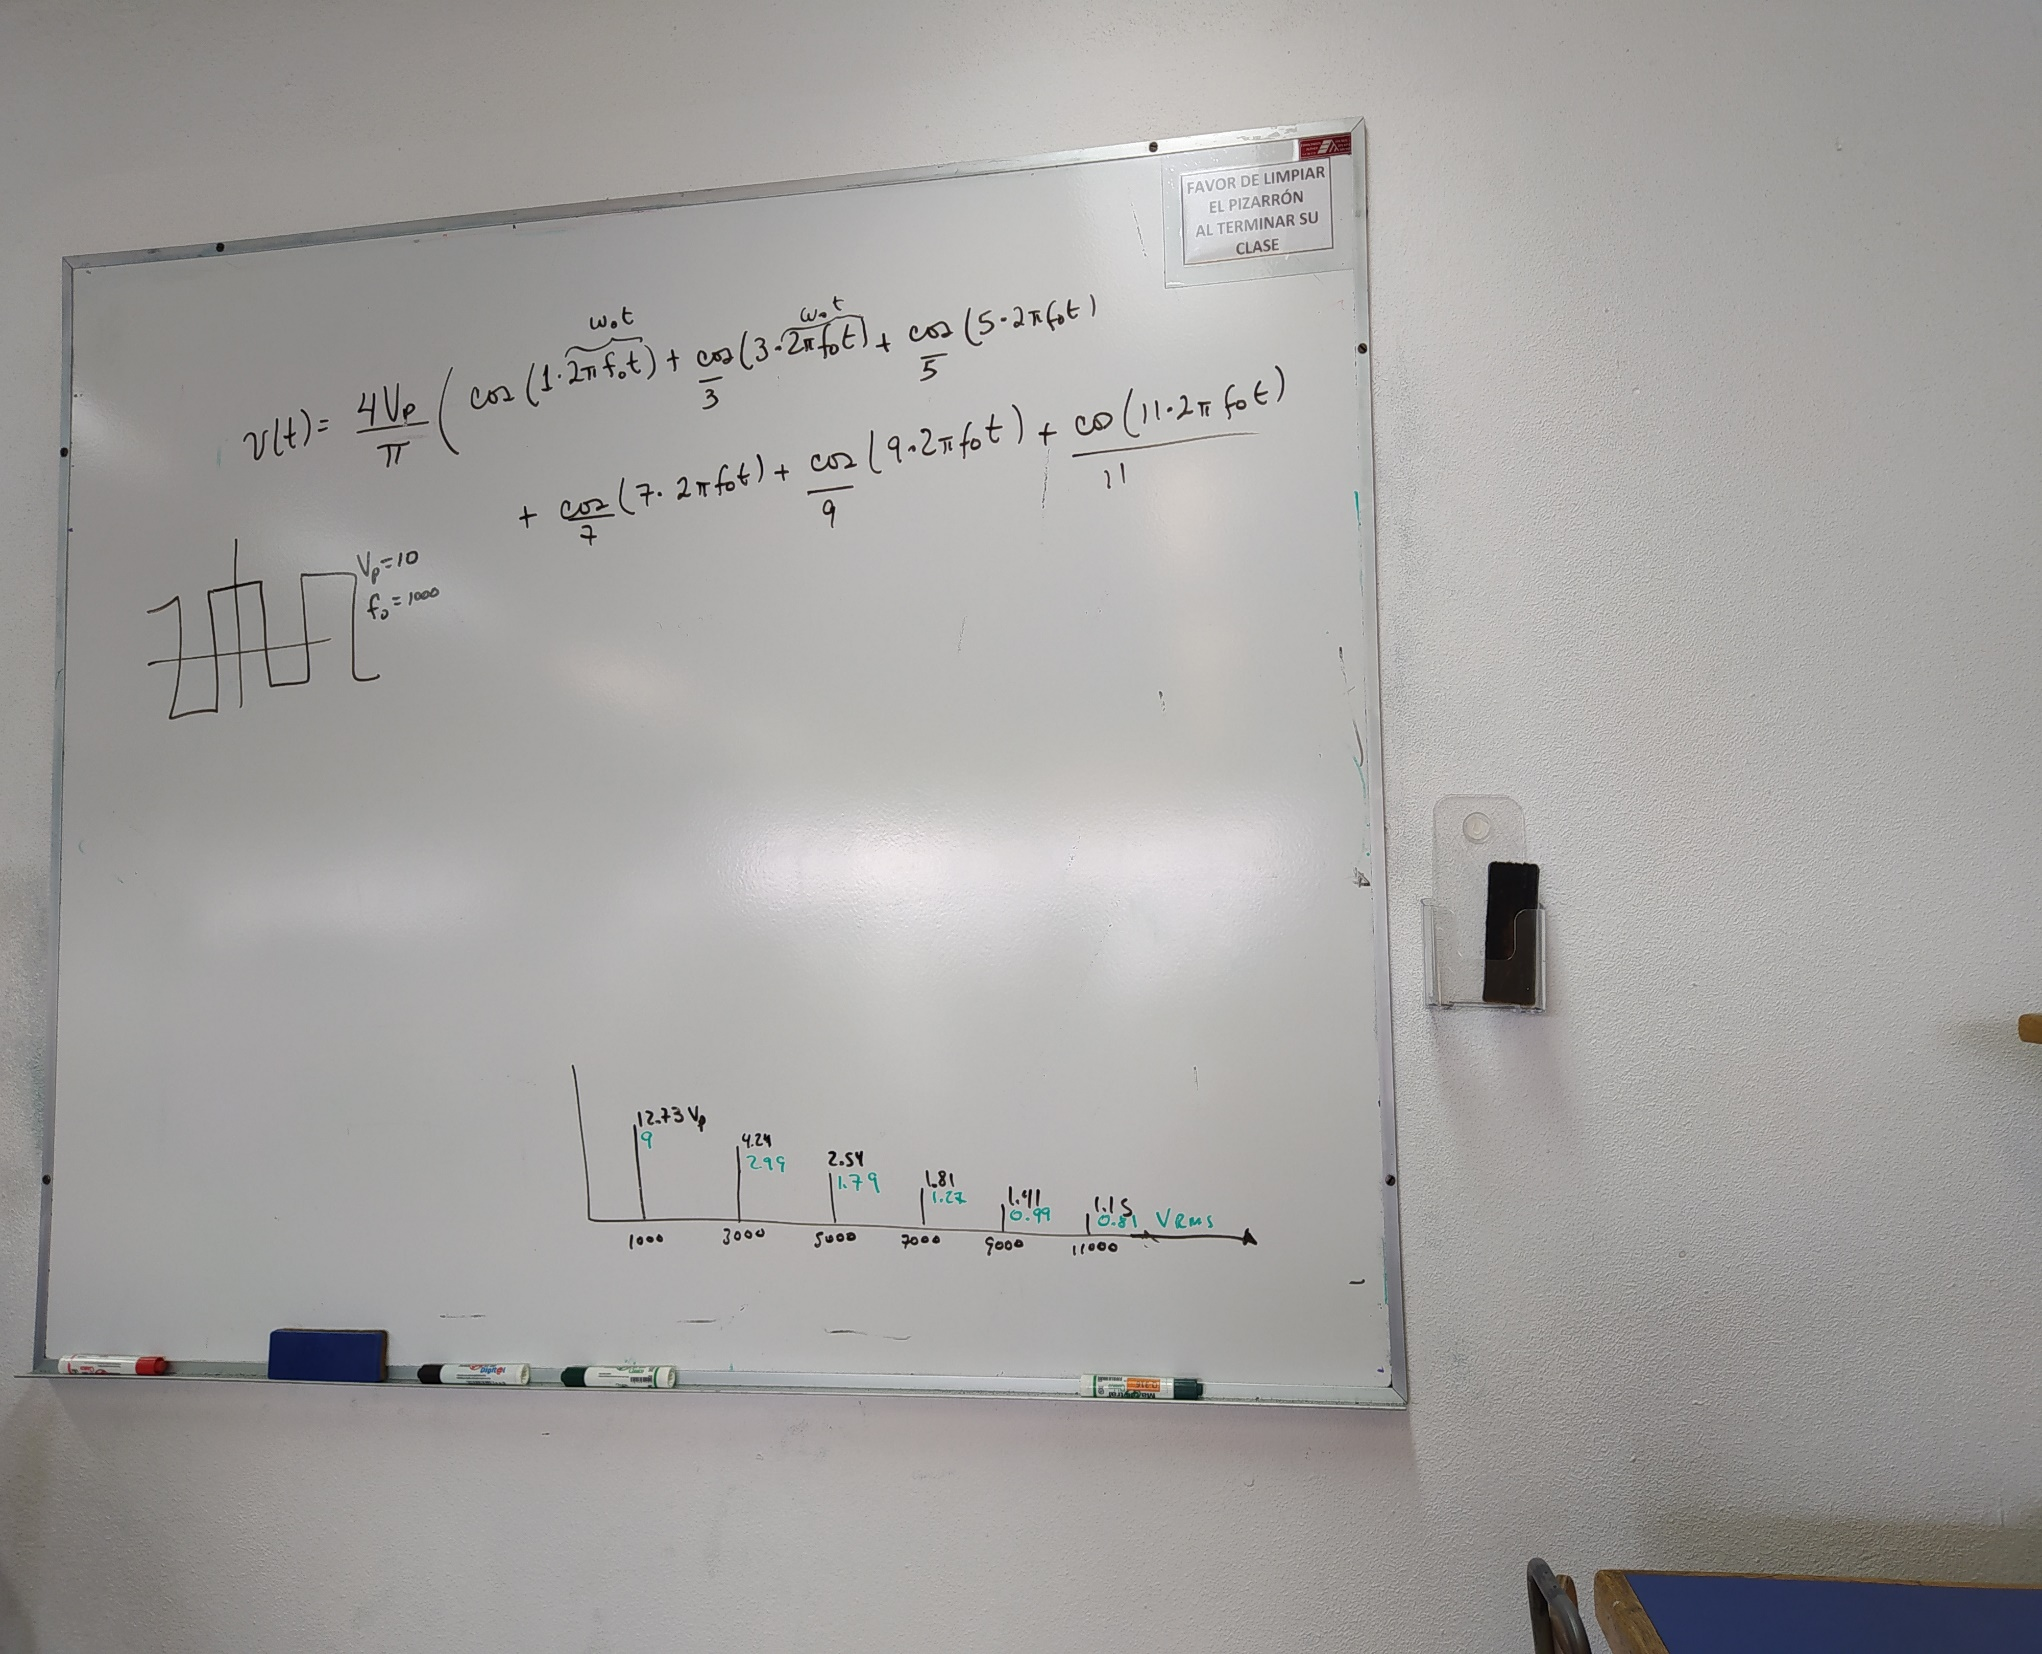 FAVOR DE LIMPIAR
EL PIZARRÓN
AL TERMINAR SU
CLASE
ω₀t ω₀t
v(t) = 4Vp/π ( cos (1·2πf₀t) + cos/3 (3·2πf₀t) + cos/5 (5·2πf₀t)
+ cos/7 (7·2πf₀t) + cos/9 (9·2πf₀t) + co(11·2πf₀t)/11
Vp=10
f₀=1000
12.73 Vp
9
4.24
2.99
2.54
1.79
1.81
1.27
1.41
0.99
1.15
0.81 VRMS
1000 3000 5000 7000 9000 11000
Digital
Magistral